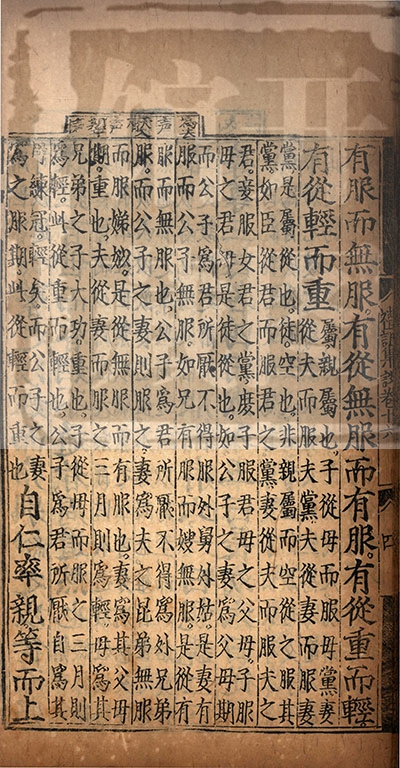 有服而無服有從無服而有服有從重而輕
有從輕而重
屬親屬也子從母而服母黨妻
從夫而服夫黨夫從妻而服妻
黨是屬從也徒空也非親屬而空從之服其
黨如臣從君而服君之黨妻從夫而服夫之
君妾服女君之黨庶子服君母之父母子服
母之君母是徒從也如公子之妻為父母期
而公子為君所厭不得服外舅外姑是妻有
服而公子無服如兄有服而嫂無服是從有
服而無服也公子為君所厭不得為外兄弟
服而公子之妻則服之妻為夫之昆弟無服
而服娣姒是從無服而有服也妻為其父母
期重也夫從妻而服之三月則為輕母為其
兄弟之子大功重也子從母而服之三月則
為輕此從重而輕也公子為君所厭自為其
母練冠輕矣而公子之妻
為之服期此從輕而重也
自仁率親等而上